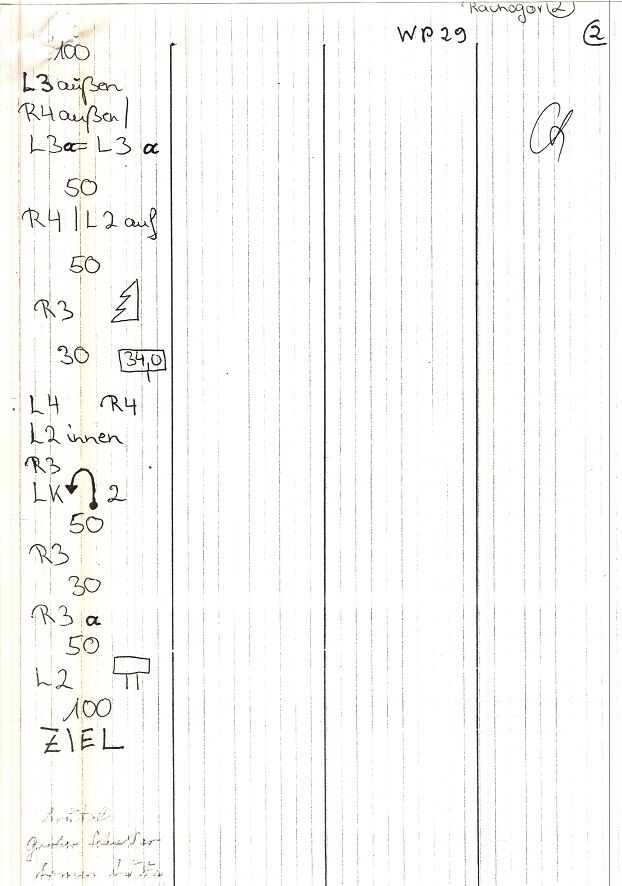 WP 29
2
100
L3 außen
R4 außen/
L3α= L3 α
50
R4 | L2 auf
50
R3
30 34,0
L4 R4
L2 innen
R3
LK 2
50
R3
30
R3 α
50
L2
100
ZIEL